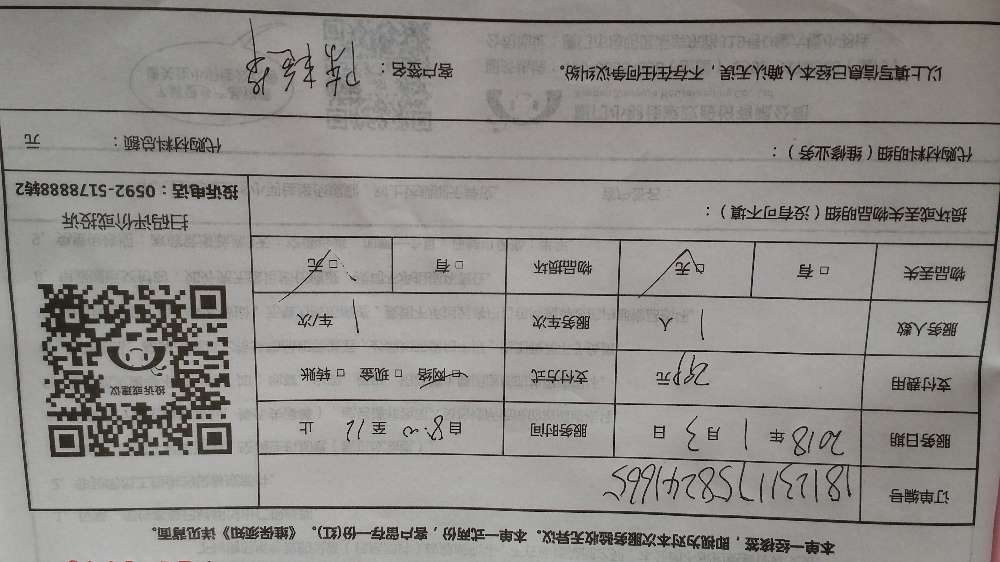 本单一经核签，即视为对本次服务验收无异议。本单一式两份，客户留存一份(红)。《维保须知》详见背面。
订单编号 181231175824166S
服务日期 2018 年 1 月 3 日 服务时间 自 8:00 至 12 止
支付费用 299 元 支付方式 □ 网络 □ 现金 □ 转账
服务人数 1 人 服务车次 1 车/次
物品丢失 □ 有 □ 无 物品损坏 □ 有 □ 无
投诉或建议
损坏或丢失物品明细（没有可不填）：
扫码评价或投诉
投诉电话：0592-5178888转2
代购材料明细（维修业务）： 代购材料总额： 元
以上填写信息已经本人确认无误，不存在任何争议纠纷。 客户签名：